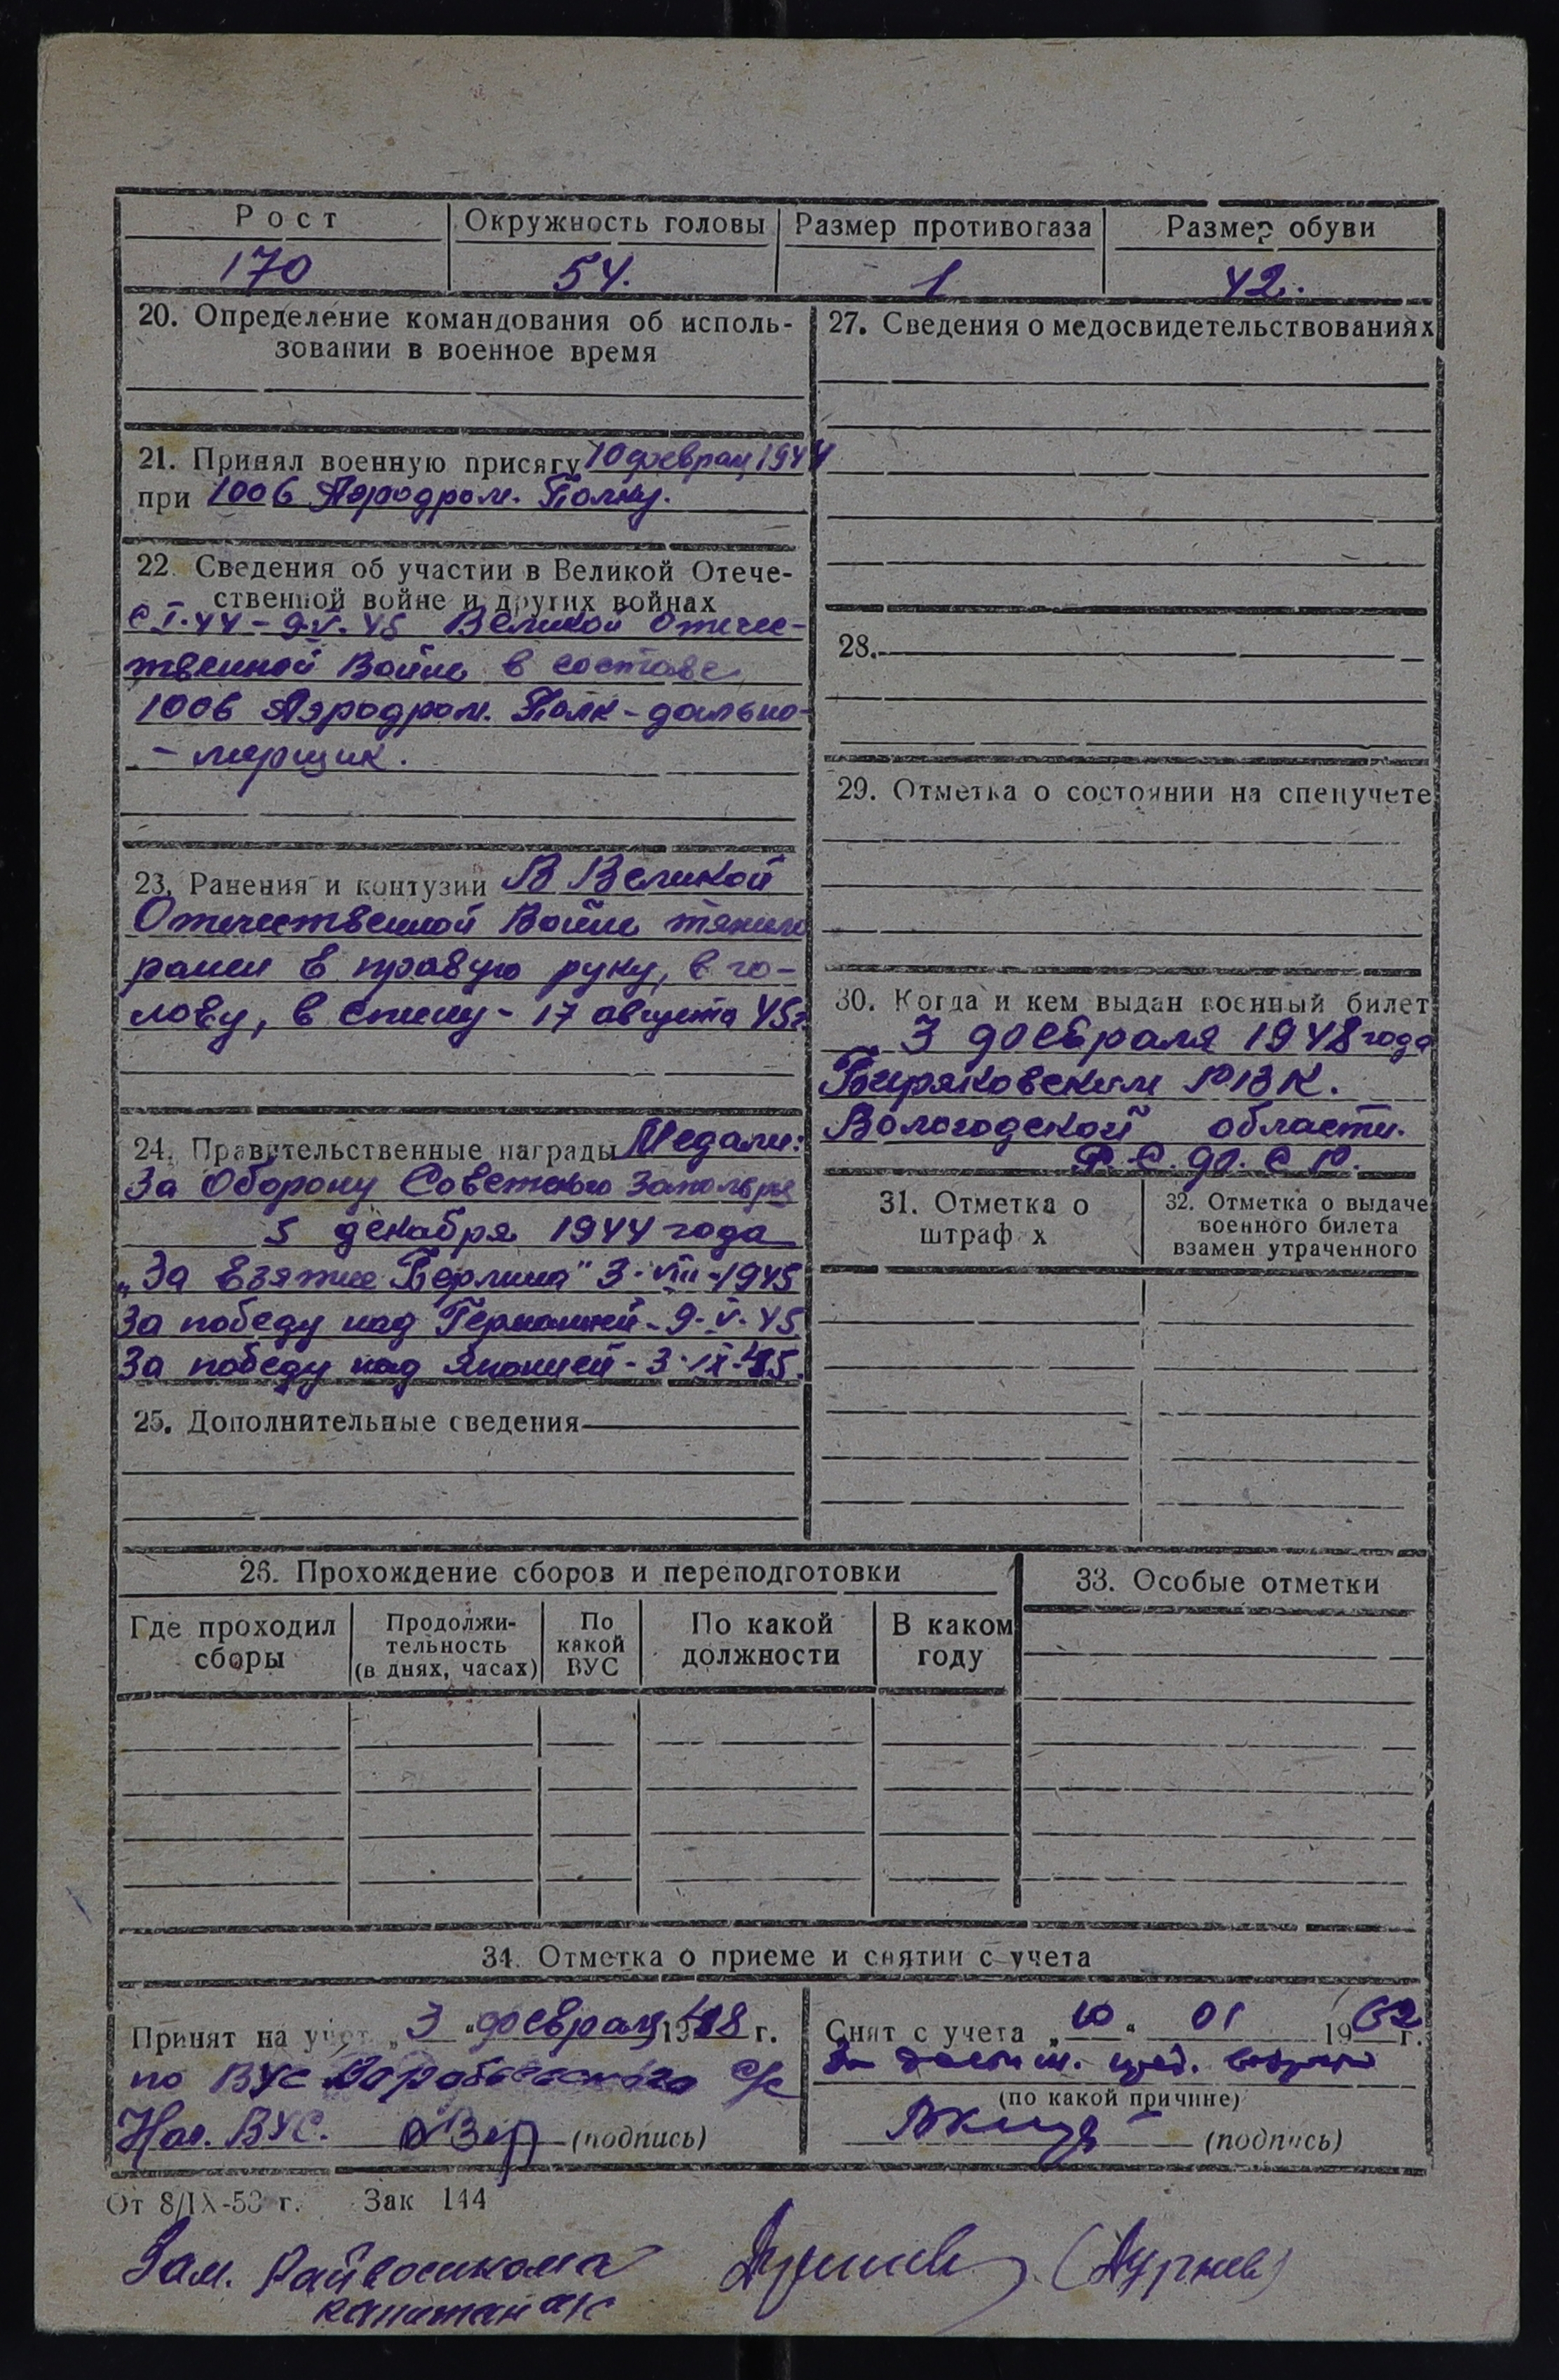 Рост
Окружность головы
Размер противогаза
Размер обуви
170
54.
1
42.
20. Определение командования об исполь-
зовании в военное время
21. Принял военную присягу 10 феврал 1944
при 1006 Аэродром. Полку.
22. Сведения об участии в Великой Отече-
ственной войне и других войнах
с I.44 - 9.V.45 Великой Отечес-
твенной Войне в составе
1006 Аэродром. Полк - дально-
- мерщик.
23. Ранения и контузии В Великой
Отечественной Войне тяжело
ранен в правую руку, в го-
лову, в спину - 17 августа 45г.
24. Правительственные награды Медали:
За Оборону Советского Заполярья
5 декабря 1944 года
„За взятие Берлина" 3-VIII-1945
За победу над Германией - 9-V-45
За победу над Японией - 3-IX-45.
25. Дополнительные сведения
27. Сведения о медосвидетельствованиях
28.
29. Отметка о состоянии на спецучете
30. Когда и кем выдан военный билет
3 февраля 1948 года
Биряковским РВК.
Вологодской области.
Р.С.Ф.С.Р.
31. Отметка о
штраф х
32. Отметка о выдаче
военного билета
взамен утраченного
26. Прохождение сборов и переподготовки
Где проходил
сборы
Продолжи-
тельность
(в днях, часах)
По
какой
ВУС
По какой
должности
В каком
году
33. Особые отметки
34. Отметка о приеме и снятии с учета
Принят на учет „3" феврал 1948 г.
по ВУС с/с
Нач. ВУС. (подпись)
Снят с учета „10" 01 1962 г.
(по какой причине)
(подпись)
От 8/IX-53 г. Зак 144
Зам. Райвоенкома
капитан а/с